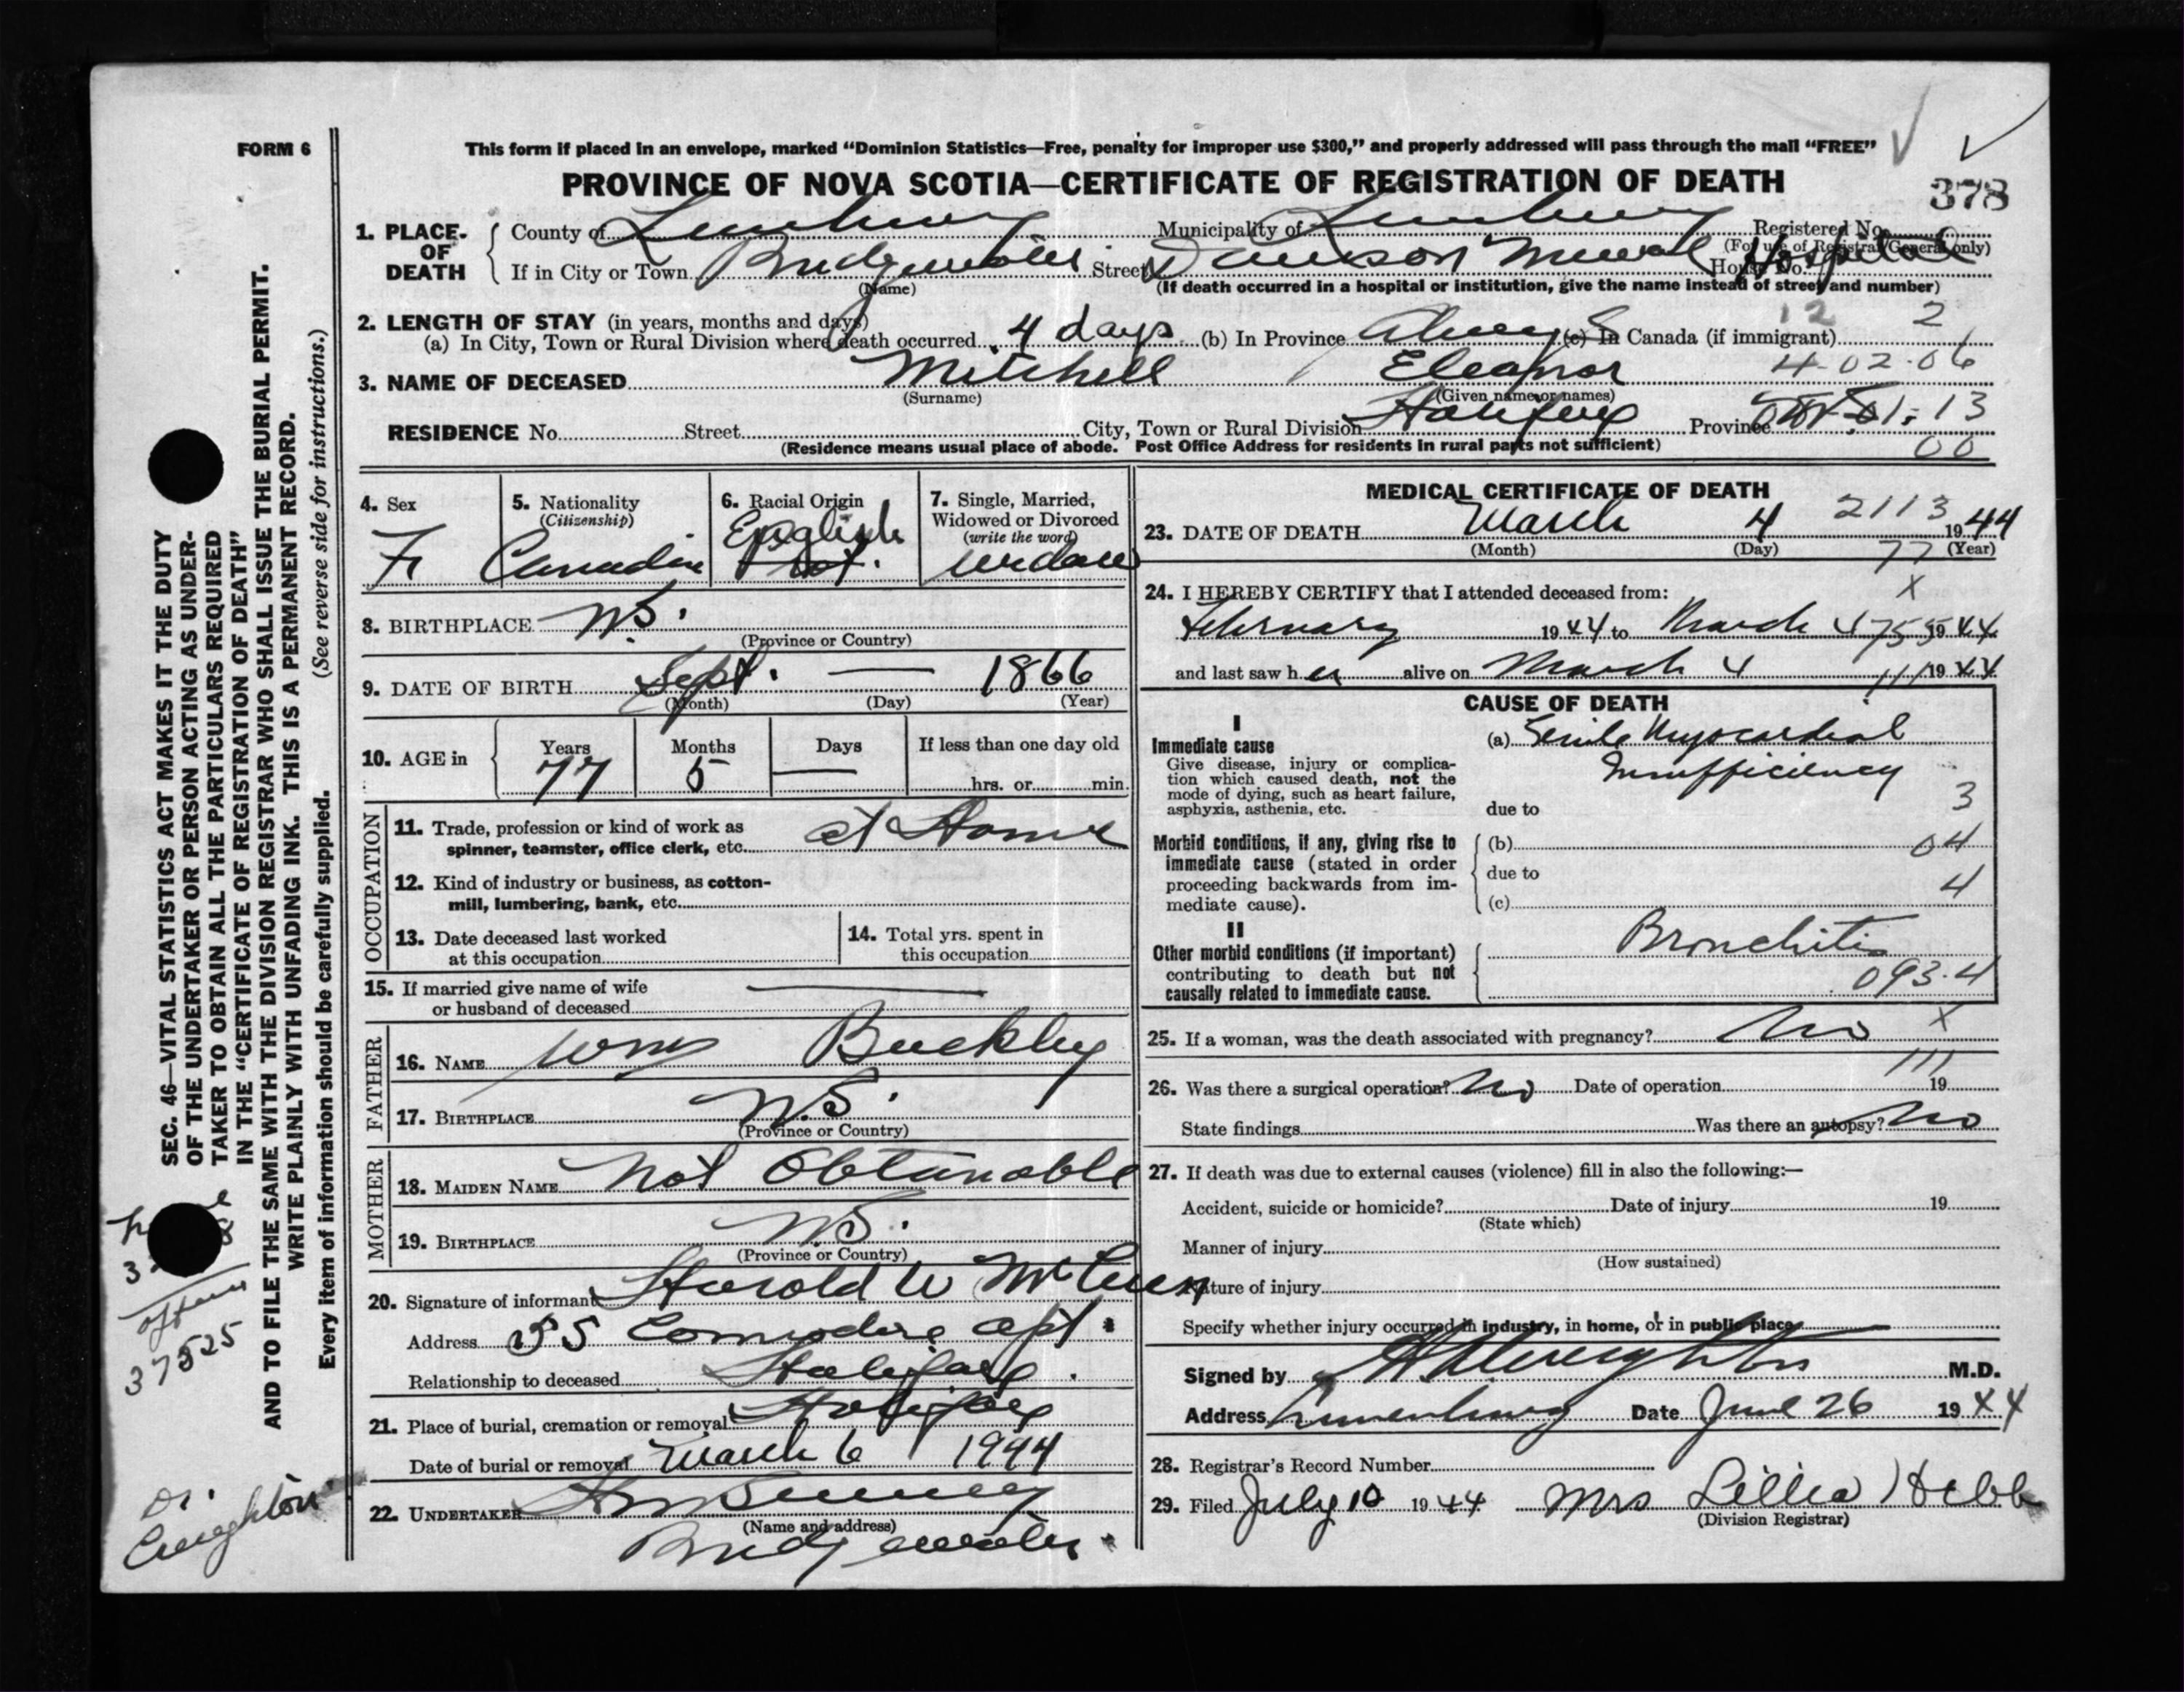 FORM 6
This form if placed in an envelope, marked "Dominion Statistics—Free, penalty for improper use $300," and properly addressed will pass through the mail "FREE"
PROVINCE OF NOVA SCOTIA—CERTIFICATE OF REGISTRATION OF DEATH
378
1. PLACE OF DEATH County of Lunenburg Municipality of Lunenburg Registered No.
(For use of Registrar General only)
If in City or Town Bridgewater Street Dawson Memorial Hospital House No.
(Name) (If death occurred in a hospital or institution, give the name instead of street and number)
2. LENGTH OF STAY (in years, months and days) 12 2
(a) In City, Town or Rural Division where death occurred 4 days (b) In Province Always (c) In Canada (if immigrant)
3. NAME OF DECEASED Mitchell Eleanor 4-02-06
(Surname) (Given name or names)
RESIDENCE No. Street City, Town or Rural Division Halifax Province 13
(Residence means usual place of abode. Post Office Address for residents in rural parts not sufficient) 00
4. Sex F
5. Nationality (Citizenship) Canadian
6. Racial Origin English Prot.
7. Single, Married, Widowed or Divorced (write the word) Widow
8. BIRTHPLACE N.S.
(Province or Country)
9. DATE OF BIRTH Sept. — 1866
(Month) (Day) (Year)
10. AGE in Years 77 Months 5 Days — If less than one day old hrs. or min.
OCCUPATION
11. Trade, profession or kind of work as spinner, teamster, office clerk, etc. at Home
12. Kind of industry or business, as cotton-mill, lumbering, bank, etc.
13. Date deceased last worked at this occupation
14. Total yrs. spent in this occupation
15. If married give name of wife or husband of deceased —
FATHER
16. NAME Wm Buckley
17. BIRTHPLACE N.S.
(Province or Country)
MOTHER
18. MAIDEN NAME Not Obtainable
19. BIRTHPLACE N.S.
(Province or Country)
20. Signature of informant Harold W
Address Apt.
Relationship to deceased Halifax.
21. Place of burial, cremation or removal Halifax
Date of burial or removal March 6 1944
22. UNDERTAKER
(Name and address)
Bridgewater
MEDICAL CERTIFICATE OF DEATH
2113
23. DATE OF DEATH March 4 1944
(Month) (Day) (Year)
77
24. I HEREBY CERTIFY that I attended deceased from: X
February 1944 to March 4 1944
and last saw her alive on March 4 1944
CAUSE OF DEATH
I
Immediate cause
Give disease, injury or complication which caused death, not the mode of dying, such as heart failure, asphyxia, asthenia, etc.
(a) Senile Myocardial
Insufficiency
due to 3
Morbid conditions, if any, giving rise to immediate cause (stated in order proceeding backwards from immediate cause).
(b) 04
due to 4
(c)
II
Other morbid conditions (if important) contributing to death but not causally related to immediate cause.
Bronchitis
093.4
25. If a woman, was the death associated with pregnancy? No X
111
26. Was there a surgical operation? No Date of operation 19
State findings Was there an autopsy? No
27. If death was due to external causes (violence) fill in also the following:—
Accident, suicide or homicide? Date of injury 19
(State which)
Manner of injury
(How sustained)
Nature of injury
Specify whether injury occurred in industry, in home, or in public place
Signed by Creighton M.D.
Address Lunenburg Date June 26 1944
28. Registrar's Record Number
29. Filed July 10 1944 Mrs Lillia Hebb
(Division Registrar)
SEC. 46—VITAL STATISTICS ACT MAKES IT THE DUTY
OF THE UNDERTAKER OR PERSON ACTING AS UNDER-
TAKER TO OBTAIN ALL THE PARTICULARS REQUIRED
IN THE "CERTIFICATE OF REGISTRATION OF DEATH"
AND TO FILE THE SAME WITH THE DIVISION REGISTRAR WHO SHALL ISSUE THE BURIAL PERMIT.
WRITE PLAINLY WITH UNFADING INK. THIS IS A PERMANENT RECORD.
Every item of information should be carefully supplied. (See reverse side for instructions.)
37525
Dr. Creighton